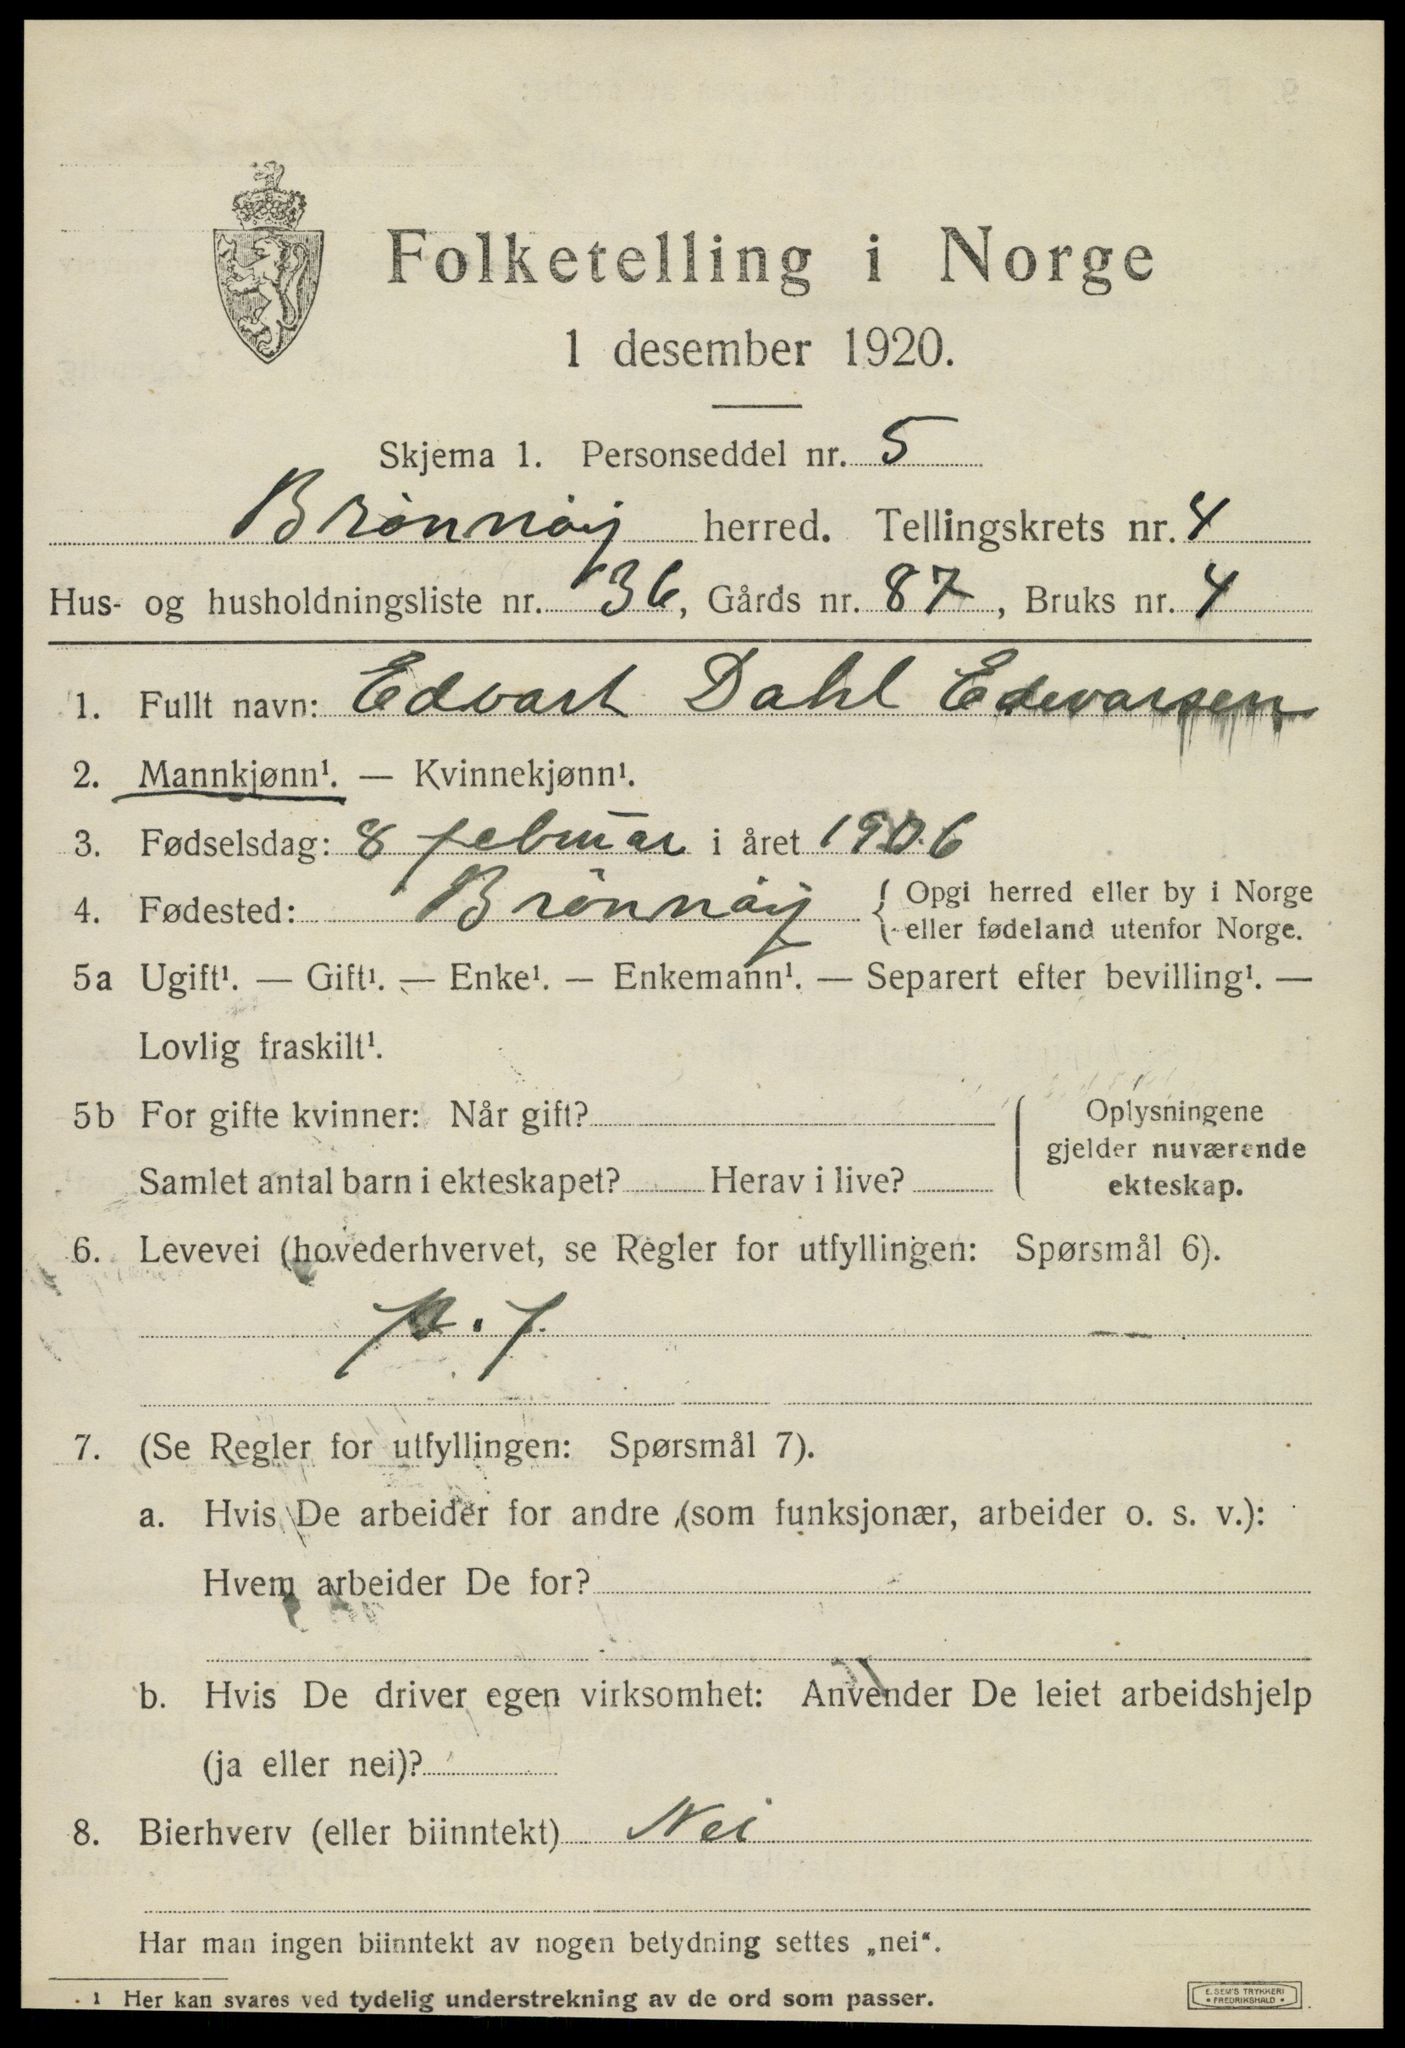 Folketelling i Norge
1 desember 1920.
Skjema 1. Personseddel nr. 5
Brønnøy herred. Tellingskrets nr. 4
Hus- og husholdningsliste nr. 36, Gårds nr. 87, Bruks nr. 4
1. Fullt navn: Edvart Dahl Edevarsen
2. Mannkjønn¹. — Kvinnekjønn¹.
3. Fødselsdag: 8 februar i året 1906
4. Fødested: Brønnøy { Opgi herred eller by i Norge
eller fødeland utenfor Norge.
5a Ugift¹. — Gift¹. — Enke¹. — Enkemann¹. — Separert efter bevilling¹. —
Lovlig fraskilt¹.
5b For gifte kvinner: Når gift?
Samlet antal barn i ekteskapet? Herav i live?
Oplysningene
gjelder nuværende
ekteskap.
6. Levevei (hovederhvervet, se Regler for utfyllingen: Spørsmål 6).
7. (Se Regler for utfyllingen: Spørsmål 7).
a. Hvis De arbeider for andre (som funksjonær, arbeider o. s. v.):
Hvem arbeider De for?
b. Hvis De driver egen virksomhet: Anvender De leiet arbeidshjelp
(ja eller nei)?
8. Bierhverv (eller biinntekt) Nei
Har man ingen biinntekt av nogen betydning settes „nei“.
¹ Her kan svares ved tydelig understrekning av de ord som passer.
E. SEM'S TRYKKERI
• FREDRIKSHALD •